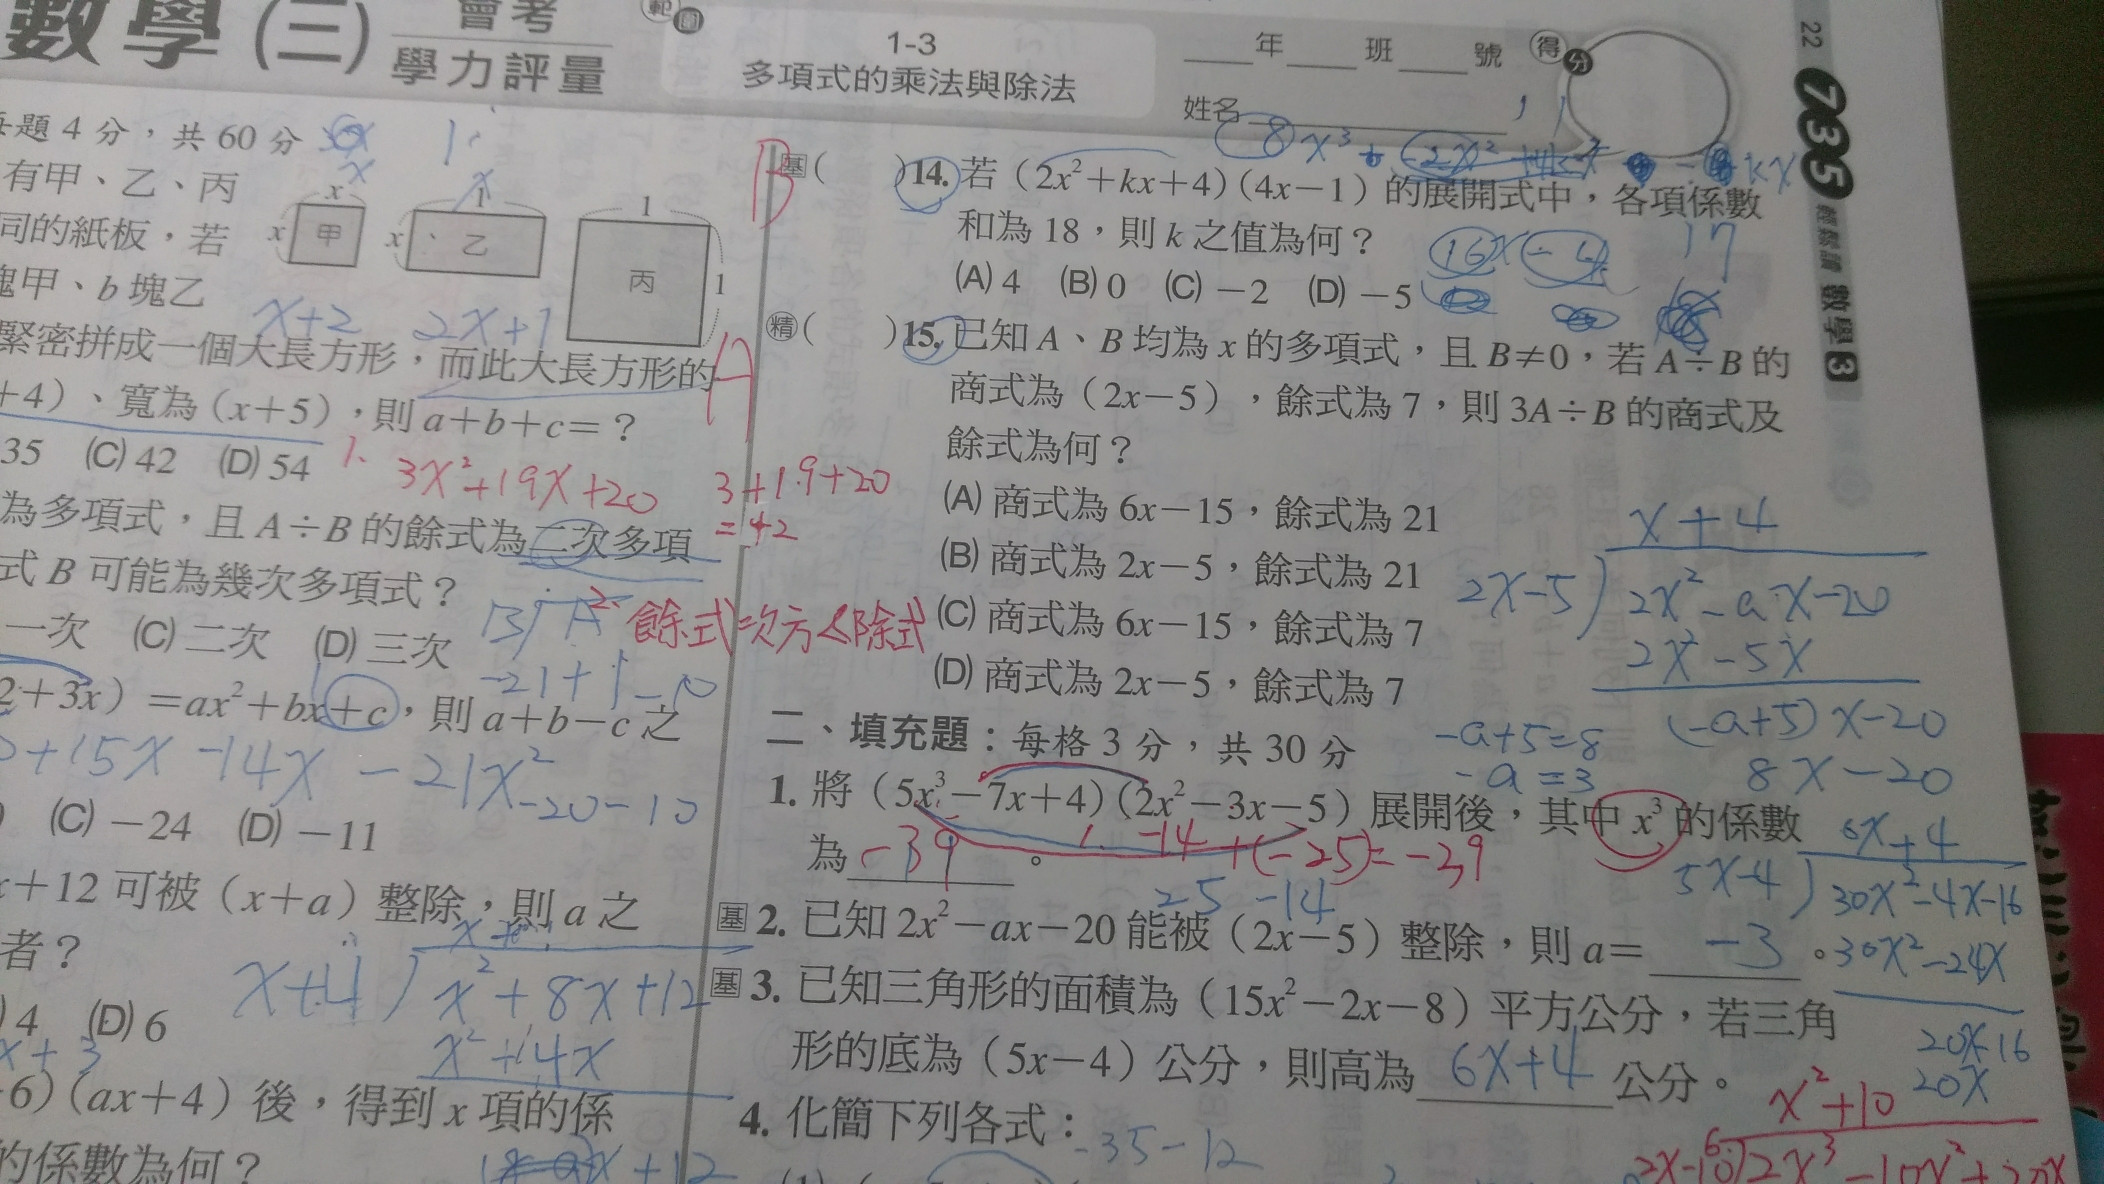 數學(三) 會考
學力評量
範圍
1-3
多項式的乘法與除法
年 班 號 得分
姓名
22 735 數學3
每題4分，共60分
有甲、乙、丙
同的紙板，若
塊甲、b塊乙
緊密拼成一個大長方形，而此大長方形的
+4)、寬為(x+5)，則a+b+c=？
35 (C)42 (D)54
x
x 甲
1
x 乙
1
丙 1
x+2 2x+1
1. 3x²+19x+20 3+19+20
=42
為多項式，且A÷B的餘式為二次多項
式B可能為幾次多項式？
一次 (C)二次 (D)三次
2. 餘式次方<除式
2+3x)=ax²+bx+c，則a+b-c之
+15x-14x-21x²
-20-10
(C)-24 (D)-11
x+12可被(x+a)整除，則a之
者？
)4 (D)6
x+4)x²+8x+12
x²+4x
x+3
6)(ax+4)後，得到x項的係
的係數為何？
B 基( )14. 若(2x²+kx+4)(4x-1)的展開式中，各項係數
和為18，則k之值為何？
(A)4 (B)0 (C)-2 (D)-5
8x³
16x-4
17
A 精( )15. 已知A、B均為x的多項式，且B≠0，若A÷B的
商式為(2x-5)，餘式為7，則3A÷B的商式及
餘式為何？
(A)商式為6x-15，餘式為21
(B)商式為2x-5，餘式為21
(C)商式為6x-15，餘式為7
(D)商式為2x-5，餘式為7
x+4
2x-5)2x²-ax-20
2x²-5x
(-a+5)x-20
8x-20
-a+5=8
-a=3
二、填充題：每格3分，共30分
1. 將(5x³-7x+4)(2x²-3x-5)展開後，其中x³的係數
為 -39 。
1. -14+(-25)=-39
25-14
基2. 已知2x²-ax-20能被(2x-5)整除，則a= -3 。
6x+4
5x-4)30x²-4x-16
30x²-24x
20x-16
20x
基3. 已知三角形的面積為(15x²-2x-8)平方公分，若三角
形的底為(5x-4)公分，則高為 6x+4 公分。
4. 化簡下列各式：
-35-12
x²+10